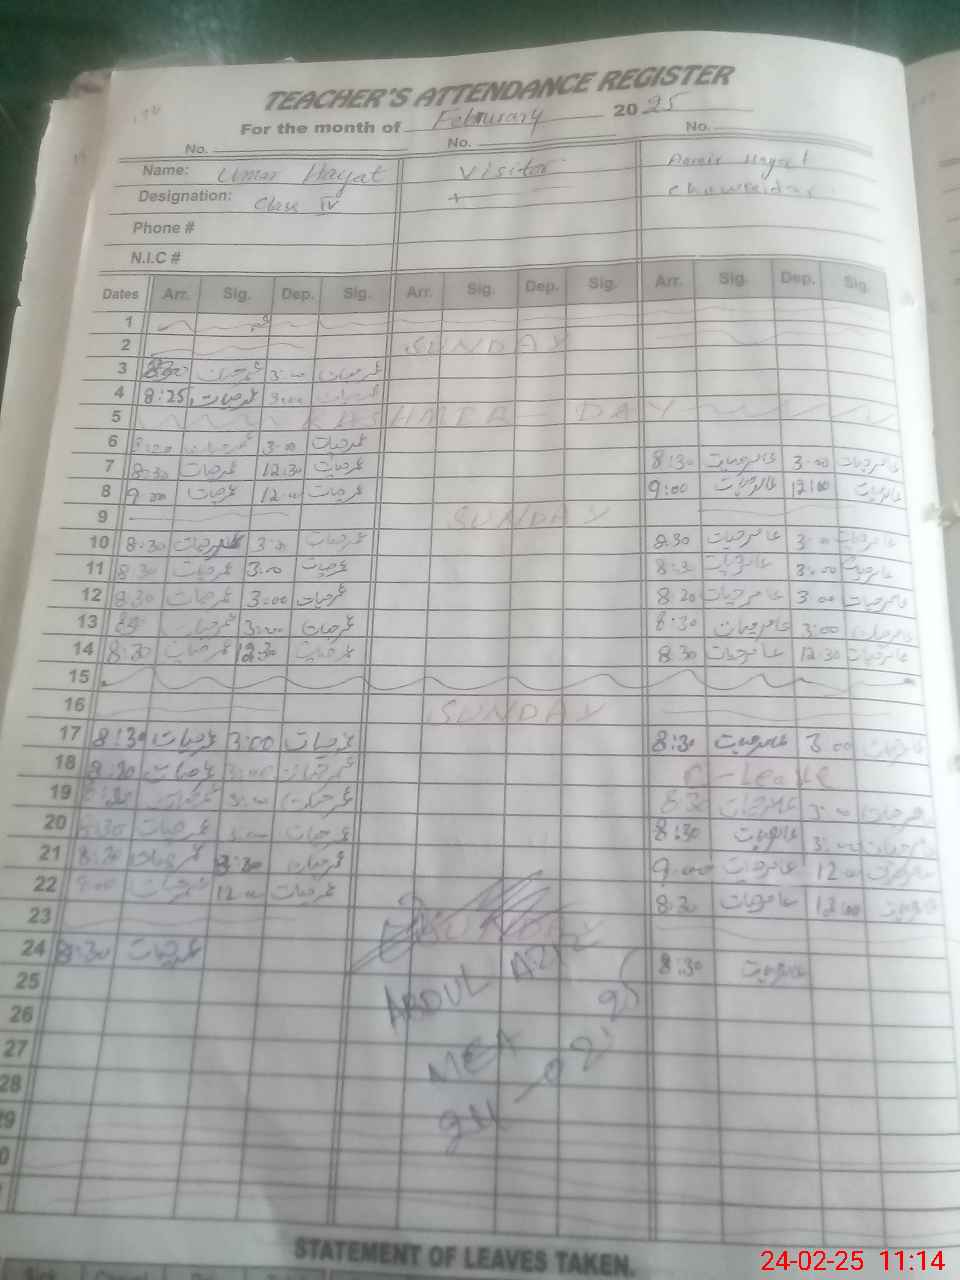 TEACHER'S ATTENDANCE REGISTER
For the month of February 2025
No. No. No.
Name: Umar Hayat Visitor Aamir Hayat
Designation: Class IV + Chowkidar
Phone #
N.I.C #
Dates Arr. Sig. Dep. Sig. Arr. Sig. Dep. Sig. Arr. Sig. Dep. Sig.
1
2 SUNDAY
3 عمرحیات 3:00 عمرحیات
4 8:25 عمرحیات 3:00 عمرحیات
5 KASHMIR DAY
6 عمرحیات 3:00 عمرحیات
7 8:30 عمرحیات 12:30 عمرحیات 8:30 عامرحیات 3:00 عامرحیات
8 9:00 عمرحیات 12:00 عمرحیات 9:00 عامرحیات 12:00 عامرحیات
9 SUNDAY
10 8:30 عمرحیات 3:00 عمرحیات 8:30 عامرحیات 3:00 عامرحیات
11 8:30 عمرحیات 3:00 عمرحیات 8:30 عامرحیات 3:00 عامرحیات
12 8:30 عمرحیات 3:00 عمرحیات 8:30 عامرحیات 3:00 عامرحیات
13 عمرحیات 3:00 عمرحیات 8:30 عامرحیات 3:00 عامرحیات
14 8:30 عمرحیات 12:30 عمرحیات 8:30 عامرحیات 12:30 عامرحیات
15
16 SUNDAY
17 8:30 عمرحیات 3:00 عمرحیات 8:30 عامرحیات 3:00 عامرحیات
18 8:30 عمرحیات 3:00 عمرحیات C-Leave
19 8:30 عمرحیات 3:00 عمرحیات 8:30 عامرحیات 3:00 عامرحیات
20 8:30 عمرحیات 3:00 عمرحیات 8:30 عامرحیات 3:00 عامرحیات
21 8:30 عمرحیات عمرحیات 9:00 عامرحیات 12:00 عامرحیات
22 9:00 عمرحیات 12:00 عمرحیات 8:30 عامرحیات 12:00 عامرحیات
23 SUNDAY
24 8:30 عمرحیات 8:30 عامرحیات
ABDUL AZIZ
25
26
MEA
27
28
24-02-25
29
STATEMENT OF LEAVES TAKEN.
24-02-25 11:14